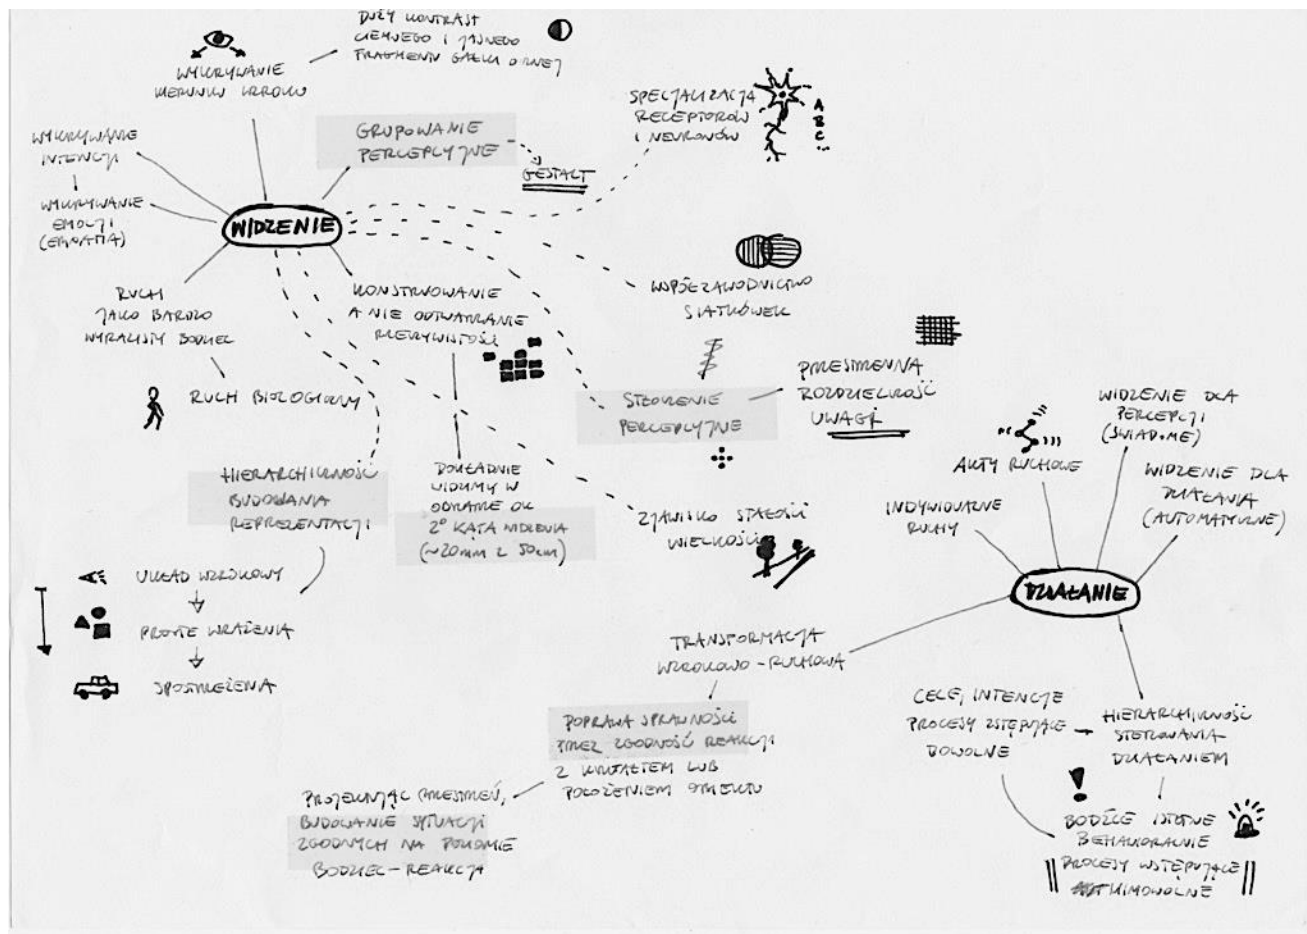 DUŻY KONTRAST
CIEMNEGO I JASNEGO
FRAGMENTU GAŁKI OCZNEJ
WYKRYWANIE
KIERUNKU WZROKU
GRUPOWANIE
PERCEPCYJNE
GESTALT
SPECJALIZACJA
RECEPTORÓW
I NEURONÓW
A
B
C
...
WYKRYWANIE
INTENCJI
WYKRYWANIE
EMOCJI
(EMPATIA)
WIDZENIE
RUCH
JAKO BARDZO
WYRAZISTY BODZIEC
RUCH BIOLOGICZNY
KONSTRUOWANIE
A NIE ODTWARZANIE
RZECZYWISTOŚCI
WSPÓŁZAWODNICTWO
SIATKÓWEK
STŁOCZENIE
PERCEPCYJNE
PRZESTRZENNA
ROZDZIELCZOŚĆ
UWAGI
HIERARCHICZNOŚĆ
BUDOWANIA
REPREZENTACJI
DOKŁADNIE
WIDZIMY W
OBSZARZE OK
2° KĄTA WIDZENIA
(~20mm z 50cm)
ZJAWISKO STAŁOŚCI
WIELKOŚCI
UKŁAD WZROKOWY
PROSTE WRAŻENIA
SPOSTRZEŻENIA
WIDZENIE DLA
PERCEPCJI
(ŚWIADOME)
AKTY RUCHOWE
WIDZENIE DLA
DZIAŁANIA
(AUTOMATYCZNE)
INDYWIDUALNE
RUCHY
DZIAŁANIE
TRANSFORMACJA
WZROKOWO-RUCHOWA
POPRAWA SPRAWNOŚCI
PRZEZ ZGODNOŚĆ REAKCJI
Z KSZTAŁTEM LUB
POŁOŻENIEM OBIEKTU
PROJEKTUJĄC PRZESTRZEŃ,
BUDOWANIE SYTUACJI
ZGODNYCH NA POZIOMIE
BODZIEC-REAKCJA
CELE, INTENCJE
PROCESY ZSTĘPUJĄCE
DOWOLNE
HIERARCHICZNOŚĆ
STEROWANIA
DZIAŁANIEM
BODŹCE ISTOTNE
BEHAWIORALNIE
PROCESY WSTĘPUJĄCE
MIMOWOLNE